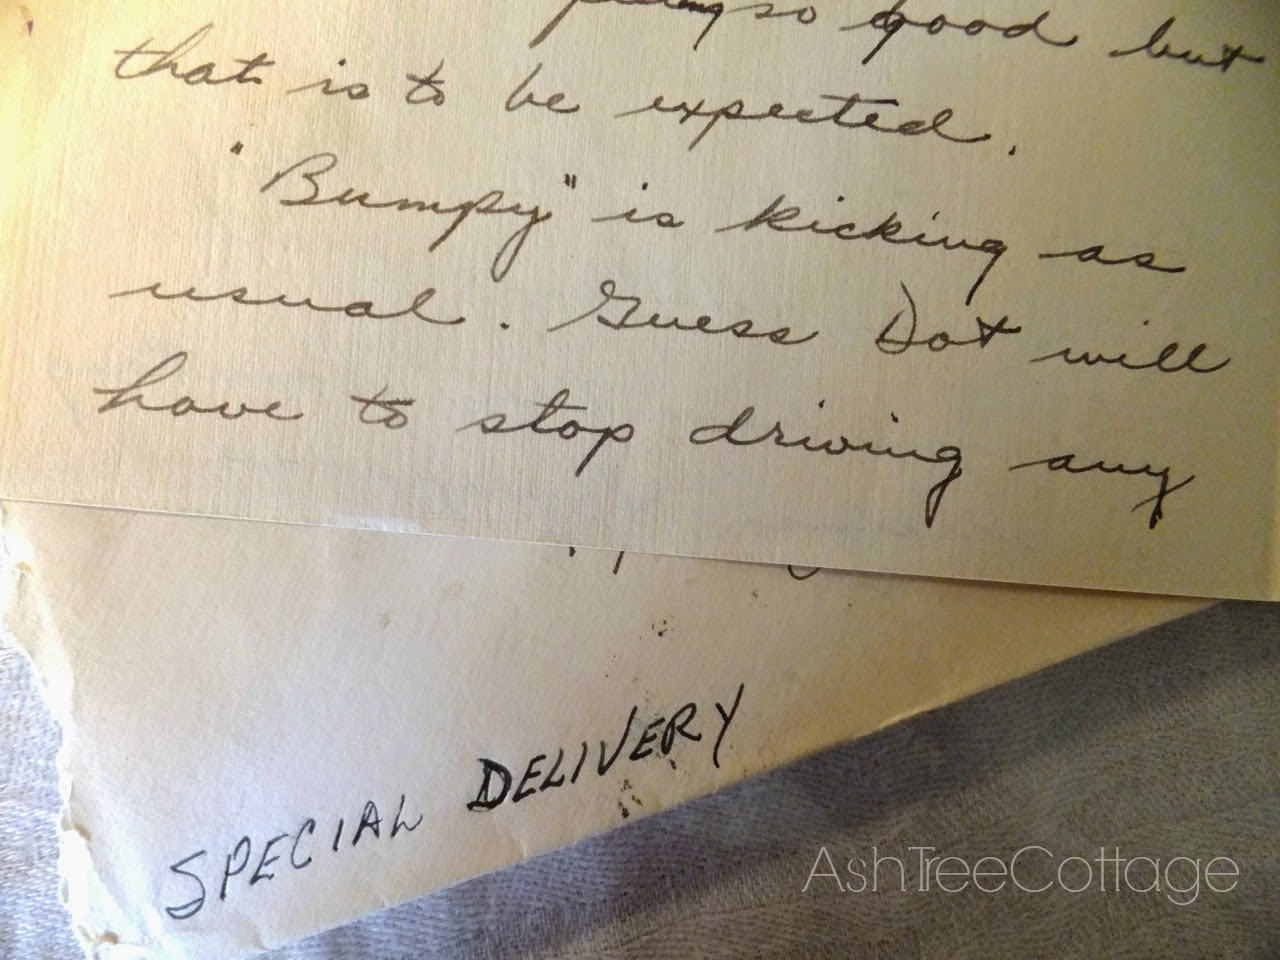 so good but
that is to be expected.
"Bumpy" is kicking as
usual. Guess Dot will
have to stop driving any
SPECIAL DELIVERY
AshTreeCottage